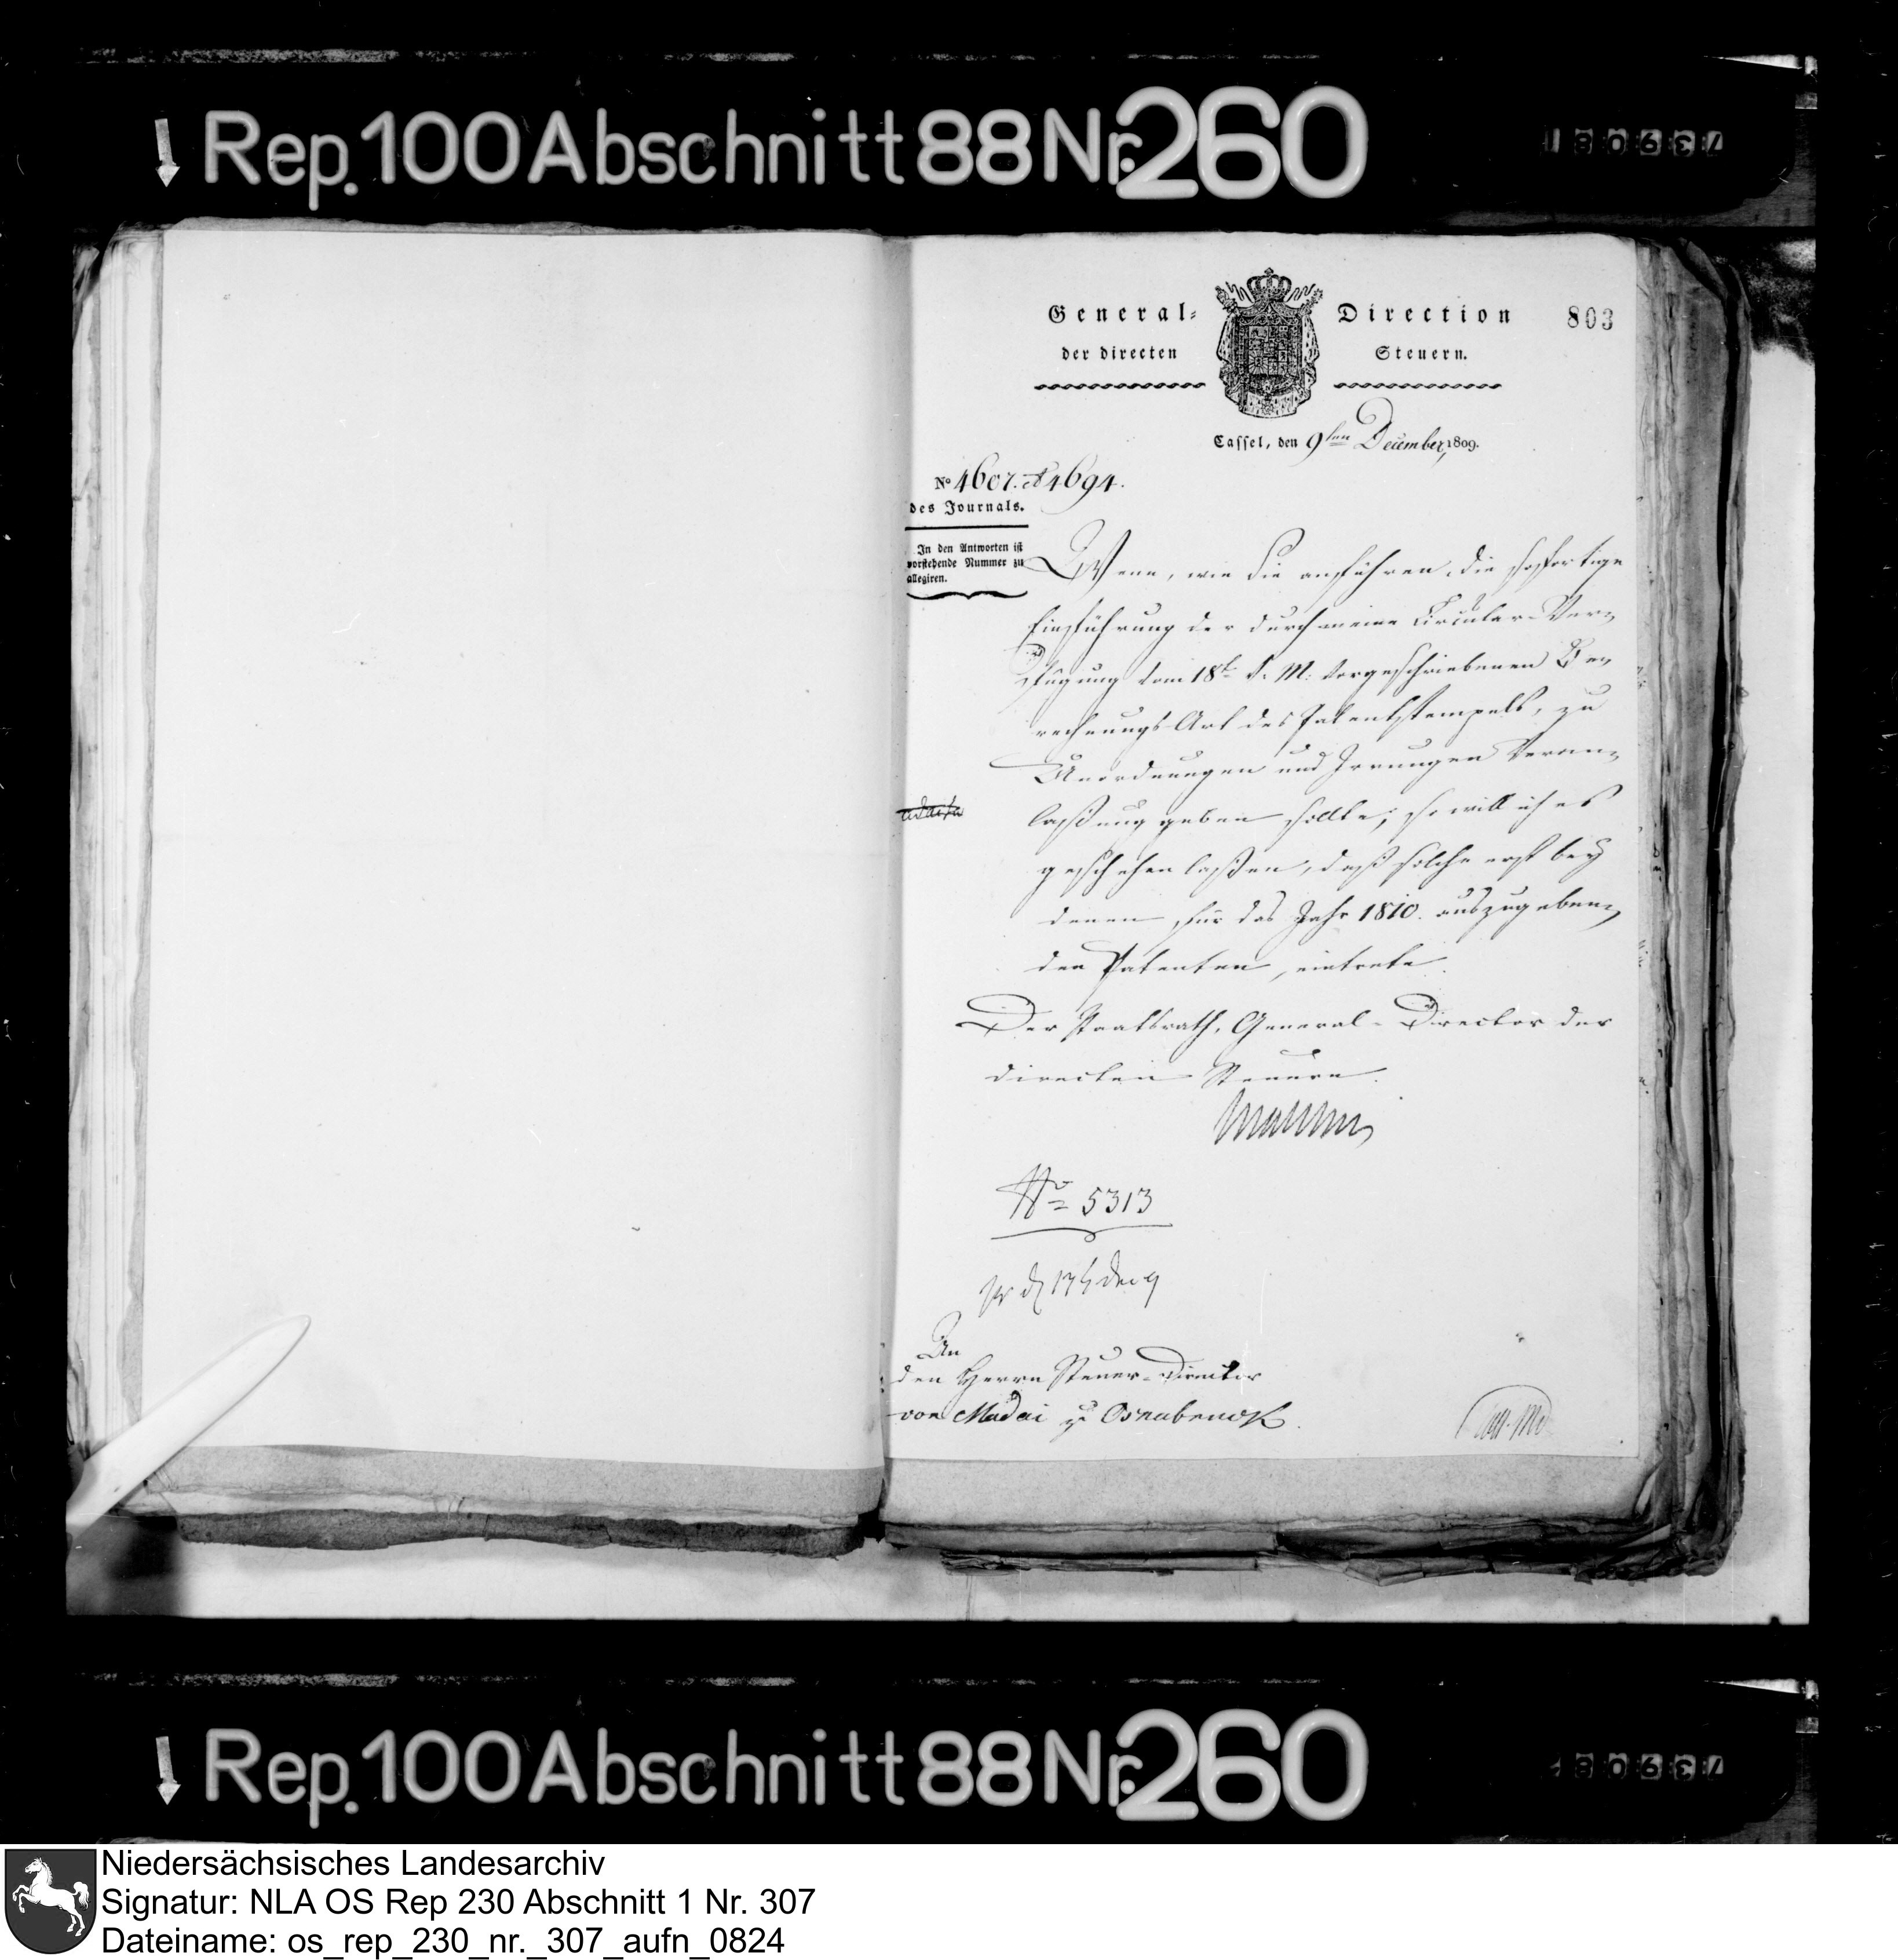 Rep. 100 Abschnitt 88 Nr. 260
General- Direction
803
der directen Steuern.
Cassel, den 9ten December, 1809.
No 4607. et 4694.
des Journals.
In den Antworten ist
vorstehende Nummer zu
allegiren.
Wenn, wie Sie anführen, die sofortige
Einführung der durch meine Circular-Ver-
fügung vom 18t v. M. vorgeschriebenen Be-
rechnungs Art des Patentstempels, zu
Unordnungen und Irrungen Veran-
laßung geben sollte; so will ich es
geschehen laßen, daß solche erst bey
denen für das Jahr 1810. auszugeben-
den Patenten, eintrete.
Der Staatsrath, General-Director der
directen Steuern.
No 5313
An
den Herrn Steuer-Director
von Madai zu Osnabrück.
Rep. 100 Abschnitt 88 Nr. 260
Niedersächsisches Landesarchiv
Signatur: NLA OS Rep 230 Abschnitt 1 Nr. 307
Dateiname: os_rep_230_nr._307_aufn_0824